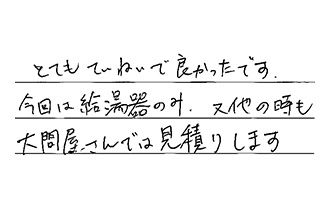 とてもていねいで良かったです.
今回は給湯器のみ. 又他の時も
大問屋さんでは見積りします